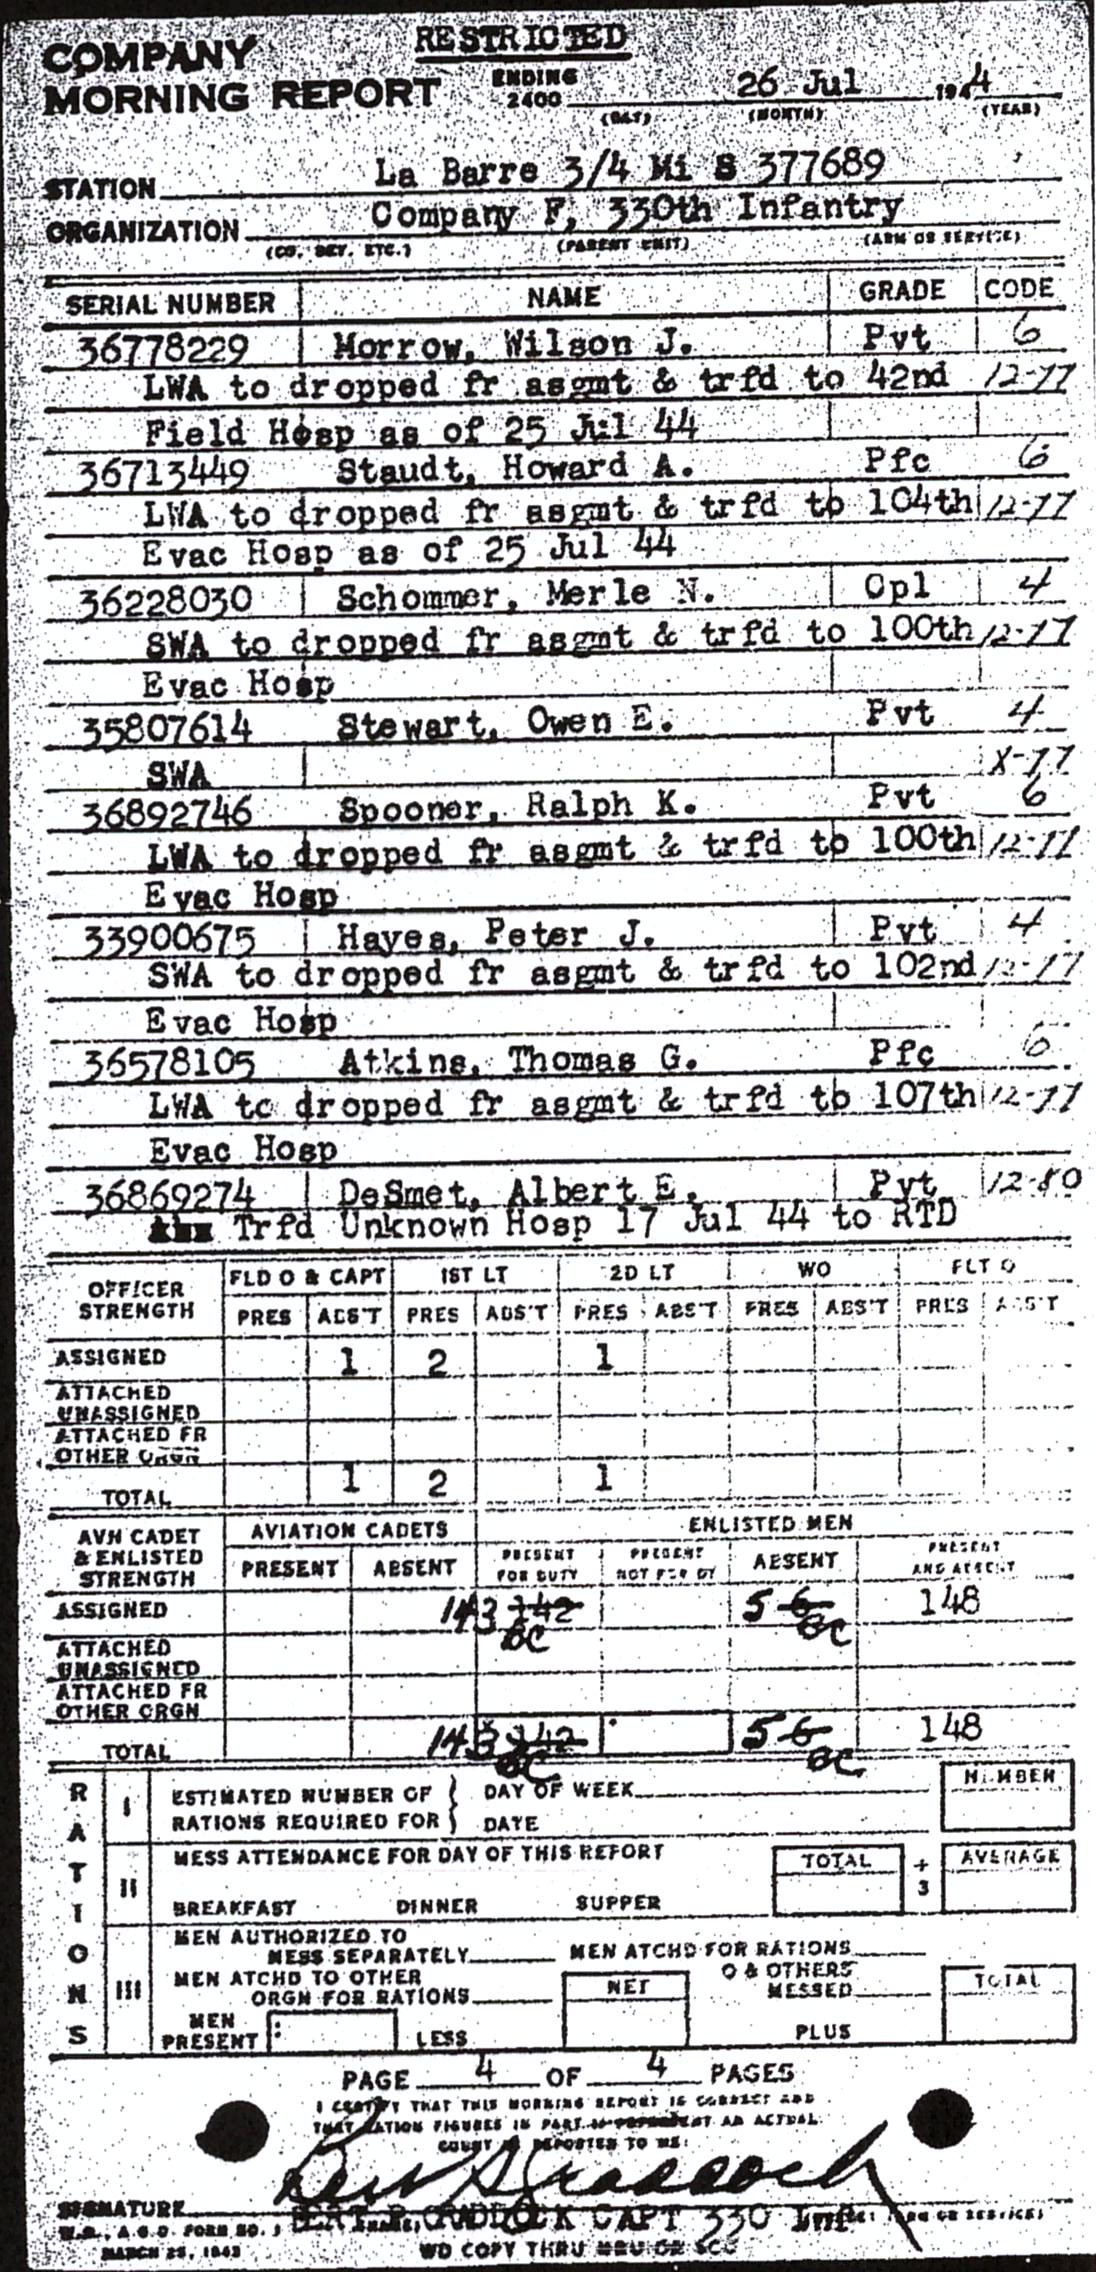 RESTRICTED
COMPANY
MORNING REPORT ENDING 2400 26 Jul 1944
(DAY) (MONTH) (YEAR)
STATION La Barre 3/4 Mi S 377689
ORGANIZATION Company F, 330th Infantry
(CO. DET. ETC.) (PARENT UNIT) (ARM OR SERVICE)
SERIAL NUMBER NAME GRADE CODE
36778229 Morrow, Wilson J. Pvt 6
LWA to dropped fr asgmt & trfd to 42nd 12-77
Field Hosp as of 25 Jul 44
36713449 Staudt, Howard A. Pfc 6
LWA to dropped fr asgmt & trfd to 104th 12-77
Evac Hosp as of 25 Jul 44
36228030 Schommer, Merle N. Cpl 4
SWA to dropped fr asgmt & trfd to 100th 12-77
Evac Hosp
35807614 Stewart, Owen E. Pvt 4
SWA X-77
36892746 Spooner, Ralph K. Pvt 6
LWA to dropped fr asgmt & trfd to 100th 12-77
Evac Hosp
33900675 Hayes, Peter J. Pvt 4
SWA to dropped fr asgmt & trfd to 102nd 12-77
Evac Hosp
36578105 Atkins, Thomas G. Pfc 6
LWA to dropped fr asgmt & trfd to 107th 12-77
Evac Hosp
36869274 DeSmet, Albert E. Pvt 12-80
Trfd Unknown Hosp 17 Jul 44 to RTD
OFFICER STRENGTH FLD O & CAPT 1ST LT 2D LT WO FLT O
PRES ABS'T PRES ABS'T PRES ABS'T PRES ABS'T PRES ABS'T
ASSIGNED 1 2 1
ATTACHED UNASSIGNED
ATTACHED FR OTHER ORGN
TOTAL 1 2 1
AVN CADET & ENLISTED STRENGTH AVIATION CADETS ENLISTED MEN
PRESENT ABSENT PRESENT FOR DUTY PRESENT NOT FOR DY ABSENT PRESENT AND ABSENT
ASSIGNED 143 142 BC 5 6 BC 148
ATTACHED UNASSIGNED
ATTACHED FR OTHER ORGN
TOTAL 143 142 BC 5 6 BC 148
RATIONS
I ESTIMATED NUMBER OF RATIONS REQUIRED FOR DAY OF WEEK DATE NUMBER
II MESS ATTENDANCE FOR DAY OF THIS REPORT TOTAL ÷ 3 AVERAGE
BREAKFAST DINNER SUPPER
III MEN AUTHORIZED TO MESS SEPARATELY MEN ATCHD FOR RATIONS
MEN ATCHD TO OTHER ORGN FOR RATIONS NET O & OTHERS MESSED TOTAL
MEN PRESENT LESS PLUS
PAGE 4 OF 4 PAGES
I CERTIFY THAT THIS MORNING REPORT IS CORRECT AND
THAT RATION FIGURES IN PART III REPRESENT AN ACTUAL
COUNT OR REPORTED TO ME:
SIGNATURE BERT P. CRADDOCK CAPT 330 Inf
W.D., A.G.O. FORM NO. 1
MARCH 25, 1943
WD COPY THRU MRU OR SCU